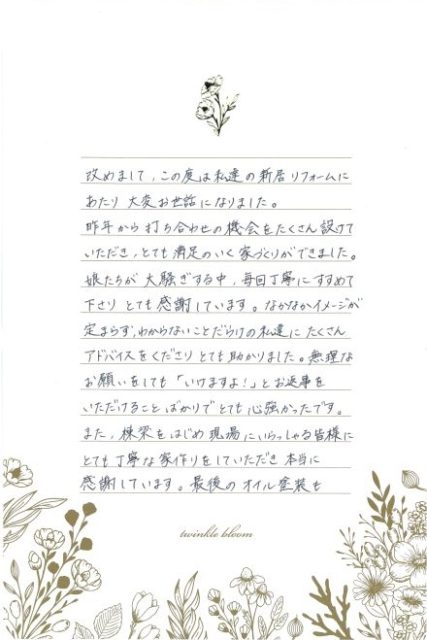 改めまして、この度は私達の新居リフォームに
あたり 大変お世話になりました。
昨年から打ち合わせの機会をたくさん設けて
いただき、とても満足のいく家づくりができました。
娘たちが大騒ぎする中、毎回丁寧にすすめて
下さり とても感謝しています。なかなかイメージが
定まらず、わからないことだらけの私達に たくさん
アドバイスをくださりとても助かりました。無理な
お願いをしても「いけますよ!」とお返事を
いただけることばかりでとても心強かったです。
また、棟梁をはじめ現場にいらっしゃる皆様に
とても丁寧な家作りをしていただき 本当に
感謝しています。最後のオイル塗装も
twinkle bloom